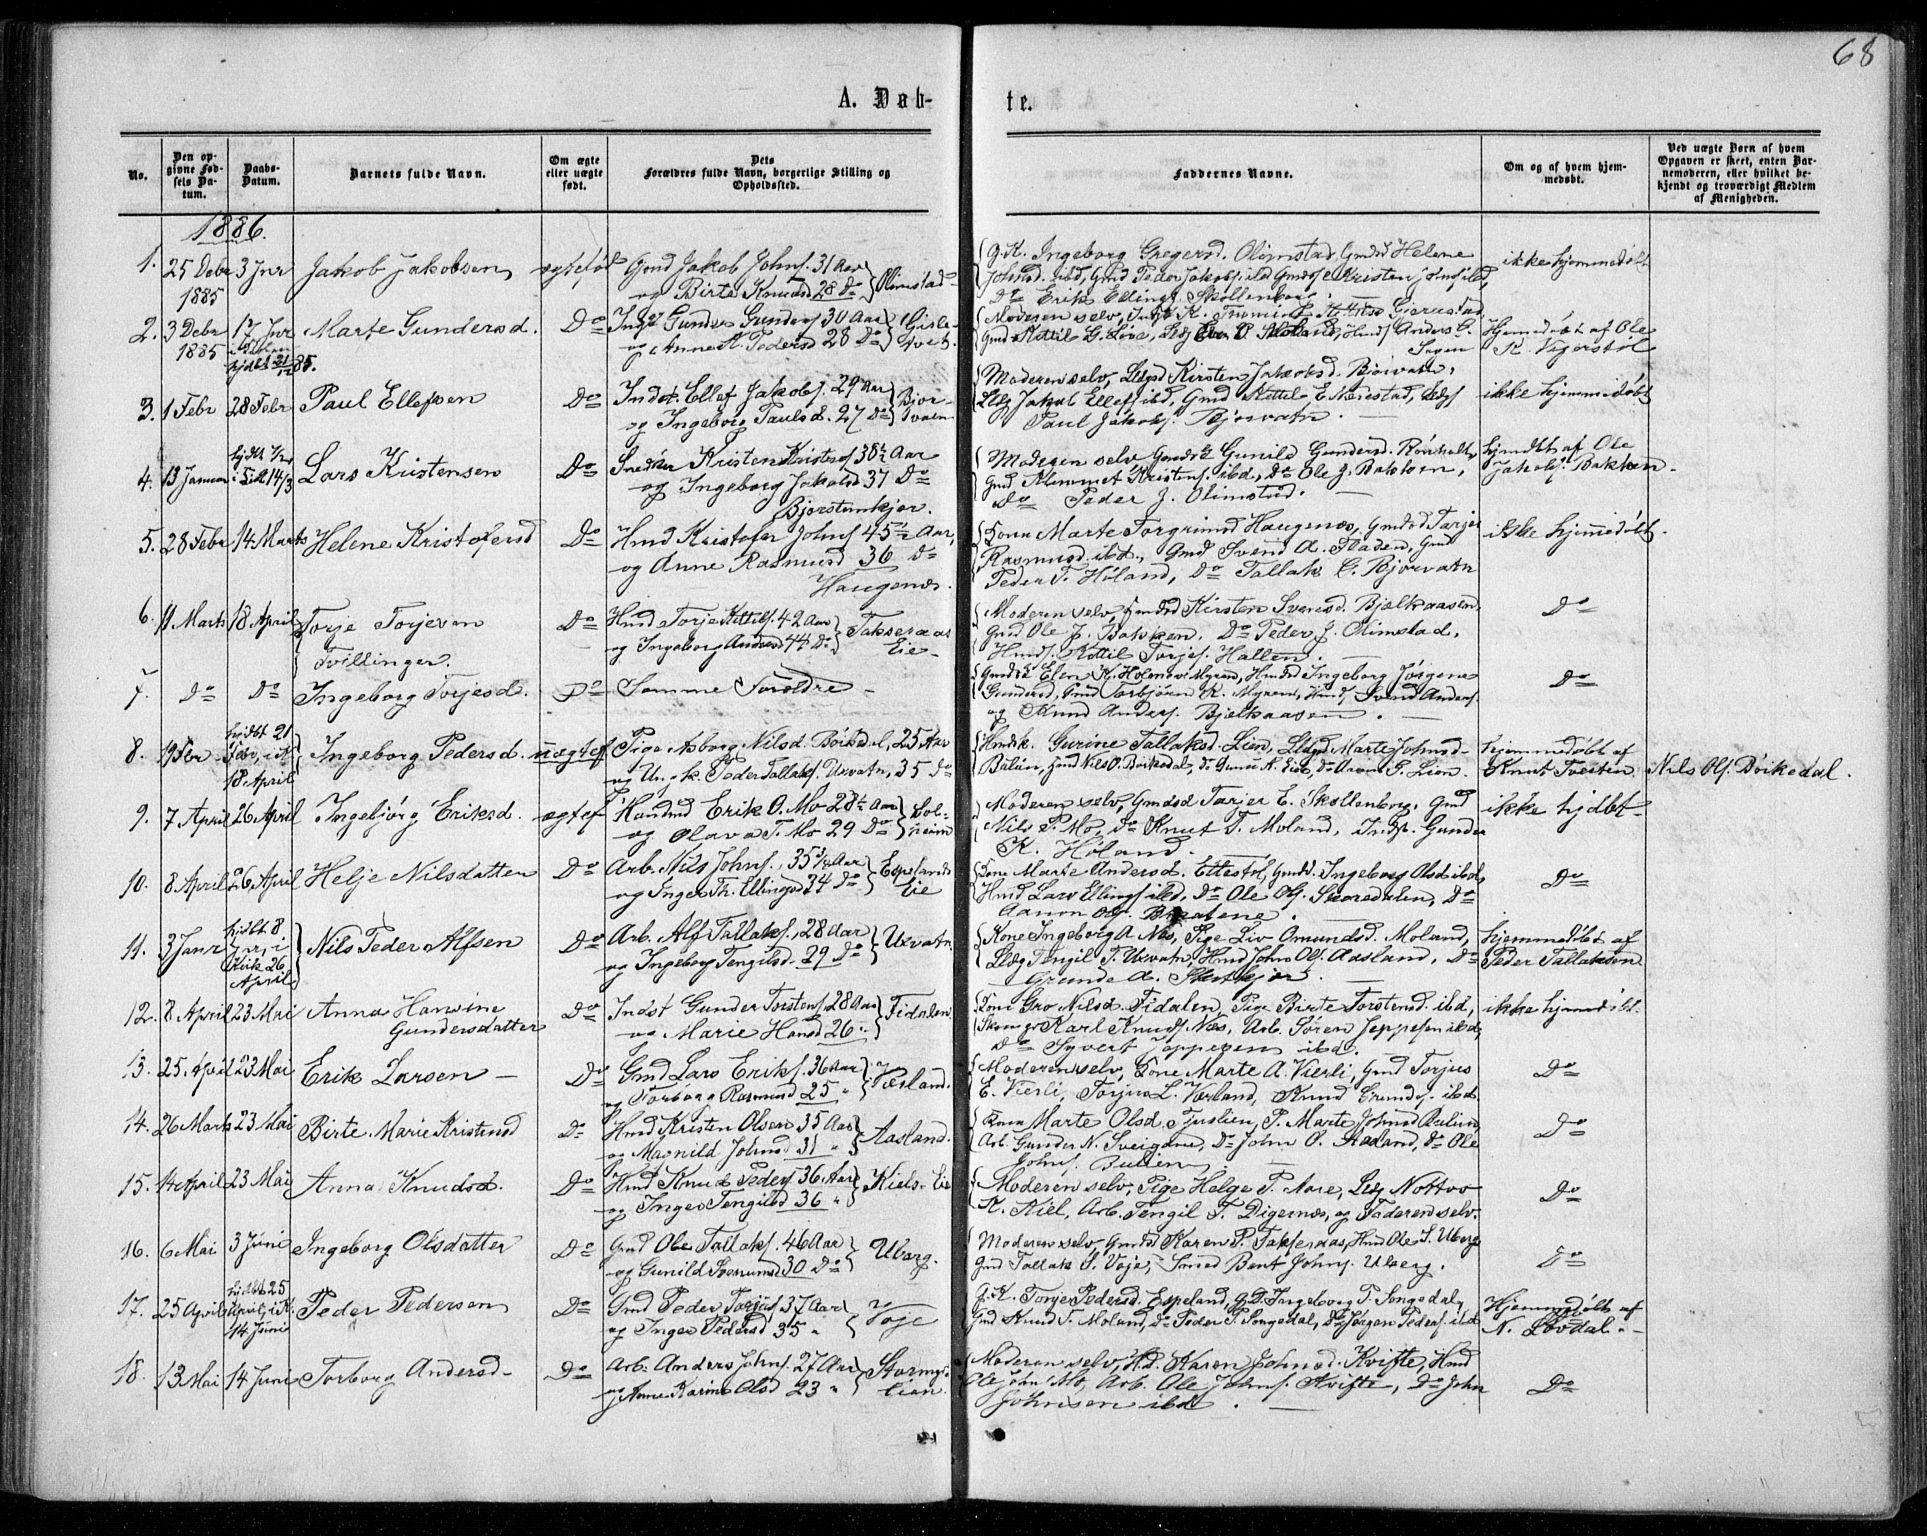 68
A. Døb-
te.
No.
Den op-
givne Fød-
sels Da-
tum.
Daabs-
Datum.
Barnets fulde Navn.
Om ægte
eller uægte
født.
Dets
Forældres fulde Navn, borgerlige Stilling og
Opholdssted.
Faddernes Navne.
Om og af hvem hjem-
medøbt.
Ved uægte Børn af hvem
Opgaven er skeet, enten Bar-
nemoderen, eller hvilket be-
kjendt og troværdigt Medlem
af Menigheden.
1886.
1. 25 Debr 3 Jnr Jakob Jakobsen ægtefød Gmd Jakob Johns. 31 Aar
1885 og Birte Knudsd 28 Do Olimstad
G. K. Ingeborg Gregersd. Olimstad, Gmdsd Helene
Johnsd. ibd, Gmd Peder Jakobs. ibd
Do Erik Ellings. Skollenborg.
ikke hjemmedøbt
2. 3 Debr 17 Jnr Marte Gundersd. Do Gunder Gunders. 30 Aar
1885 og Anne K. Pedersd 28 Do
hjdbt 21/12 85.
Moderen selv,
Gmd Kittil G. Løve,
Hjemmedøbt af Ole
K. Vegerstøl
3. 1 Febr 28 Febr Paul Ellefsen Do Indst. Ellef Jakobs. 29 Aar
og Ingeborg Paulsd. 27 Do Bjor-
vatn
Moderen selv, Kirsten Jakobsd. Bjorvatn,
Jakob Ellefs. ibd, Gmd Kittel E. Næstad,
Paul Jakobs. Bjorvatn
ikke hjemmedøbt
4. 13 Januar i K. 14/3 Lars Kristensen Do Snedker Kristen Kristens. 38½ Aar
og Ingeborg Jakobsd 37 Do
Bjorstemkjær.
Moderen selv Gunild Gundersd. Rønholt,
Gmd Klemmet Kristens. ibd., Do Ole J. Bakken,
Do Peder J. Olimstad.
hjmdbt af Ole
Jakobs. Bakken
5. 28 Febr 14 Marts Helene Kristofersd Do Hmd Kristofer Johns. 45½ Aar,
og Anne Rasmusd 36 Do
Haugenes.
Kone Marte Torgrimsd Haugenæs, Gmdsd Tarjer
Rasmusd ibd., Gmd Svend A. Fladen, Gmd
Peder T. Høland, Do Tallak C. Bjorvatn
ikke hjemedøbt
6. 11 Marts 18 April Torje Torjesen
Tvillinger.
Do Hmd Torje Kittils. 42 Aar
og Ingeborg Andersd 44 Do Takseraas
Eie
Moderen selv, Gmdsd Kirsten Svensd. Bjelkaasen,
Gmd Ole J. Bakken, Do Peder J. Olimstad,
Hmds. Kittil Torjes. Hallen.
Do
7. Do Do Ingeborg Torjesd. Do Samme Forældre
Elen K. Holmen Myren, Hmdsd Ingeborg Jørgine
Gundersd, Gmd Torbjørn K. Myren, Hmds. Svend Anders.
og Knud Anders. Bjelkaasen.
Do
8. Febr hjdbt 21
Febr, i K
18 April
Ingeborg Pedersd. uægtef Pige Asborg Nilsd. Boikedal, 25 Aar
og Ungk. Peder Tallaks. Uxvatn, 35 Do
Gurine Tallaksd. Lien, Marte Johnsd
Bulun, Hmd Nils O. Boikedal, Do Gunder N. Eie, Do Aanon P. Lien.
hjemmedøbt af
Knut Tvesten
Nils Ols. Boikedal.
9. 7 April 26 April Ingebjørg Eriksd. ægtef Handmd Erik O. Mo 28½ Aar
og Olava T. Mo 29 Do Sol-
heim
Moderen selv, Gmdsd Tarjer E. Skollenborg, Gmd
Nils P. Mo, Do Knut T. Moland, Gunder
K. Høland.
ikke hjdbt
10. 8 April 26 April Helje Nilsdatter Do Arb. Nils Johns. 35 Aar
og Inger Th. Ellingsd 34 Do Espelands
Eie
Kone Marte Andersd. Ettestøl, Gmdsd. Ingeborg Olsd ibd,
Hmd Lars Ellings ibd, Do Ole Ols. Skoredalen, Do
Aanon Ols. Braatene.
Do
11. 3 Janr hjdbt 8.
Jnr, i
Kirk 26
April
Nils Peder Alfsen Do Arb. Alf Tallaks. 28 Aar
og Ingeborg Tengilsd. 29 Do Uxvatn
Kone Ingeborg A Næs, Pige Liv Omundsd. Moland,
Tengil T. Uxvatn, Hmd John Ols. Aasland, Do
Grunde A. Stutkjær.
hjemmedøbt af
Peder Tallaksen
12. 8 April 23 Mai Anna Hansine
Gundersdatter
Do Indst Gunder Torstens. 28 Aar
og Marie Hansd 26 Fidalen
Kone Gro Nilsd Fidalen, Pige Birte Torstensd. ibd,
Karl Knuds. Næs, Arb. Søren Jeppesen ibd,
Do Syvert Jeppesen ibd.
ikke hjemmedøbt.
13. 25 April 23 Mai Erik Larsen Do Gmd Lars Eriks. 36 Aar
og Torborg Rasmusd 25 Væsland
Moderen selv, Kone Marte A. Vierli, Gmd Torjus
E. Vierli, Torjus L. Værland, Knud Grundes. ibd.
Do
14. 26 Marts 23 Mai Birte Marie Kristensd Do Hmd Kristen Olsen 35 Aar
og Magnild Johnsd 31 Aasland.
Kone Marte Olsd. Tjerslien, P. Marte Johnsd Bulun,
Arb. Gunder N. Sveigdne, Do John O. Aasland, Do Ole
Johns. Bulien
Do
15. 14 April 23 Mai Anna Knudsd. Do Hmd Knud Peders. 36 Aar
og Inger Tengilsd 36 Kiels Eie
Moderen selv, Pige Helge P. Aare, Nottov
K. Kiel, Arb. Tengil T. Digernæs, og Faderen selv.
Do
16. 6 Mai 3 Juni Ingeborg Olsdatter Do Gmd Ole Tallaks. 46 Aar
og Gunild Svenumsd 30 Do Uberg.
Moderen selv, Gmdsd Karen P. Takseraas, Hmd Ole S. Uberg
Gmd Tallak S. Voje, Smed Bent Johns. Uberg.
Do
17. 25 April hjdbt 25
April, i K.
14 Juni
Peder Pedersen Do Gmd Peder Torjus. 37 Aar
og Inger Pedersd 35 Voje
G. K. Torje Pedersd. Espeland, G. D. Ingeborg P. Songedal,
Gmd Knud S. Moland, Do Peder P. Songedal, Do Jørgen Peders. ibd
Hjemmedøbt af
N. Løvdal.
18. 13 Mai 14 Juni Torborg Andersd Do Arb. Anders Johns. 27 Aar
og Anne Karine Olsd 23
Moderen selv, H.d. Karen Johnsd. Kvifte, Hmd
Ole John Mo, Arb. Ole Johns. Kvifte, Do John
Johnsen ibd.
Do